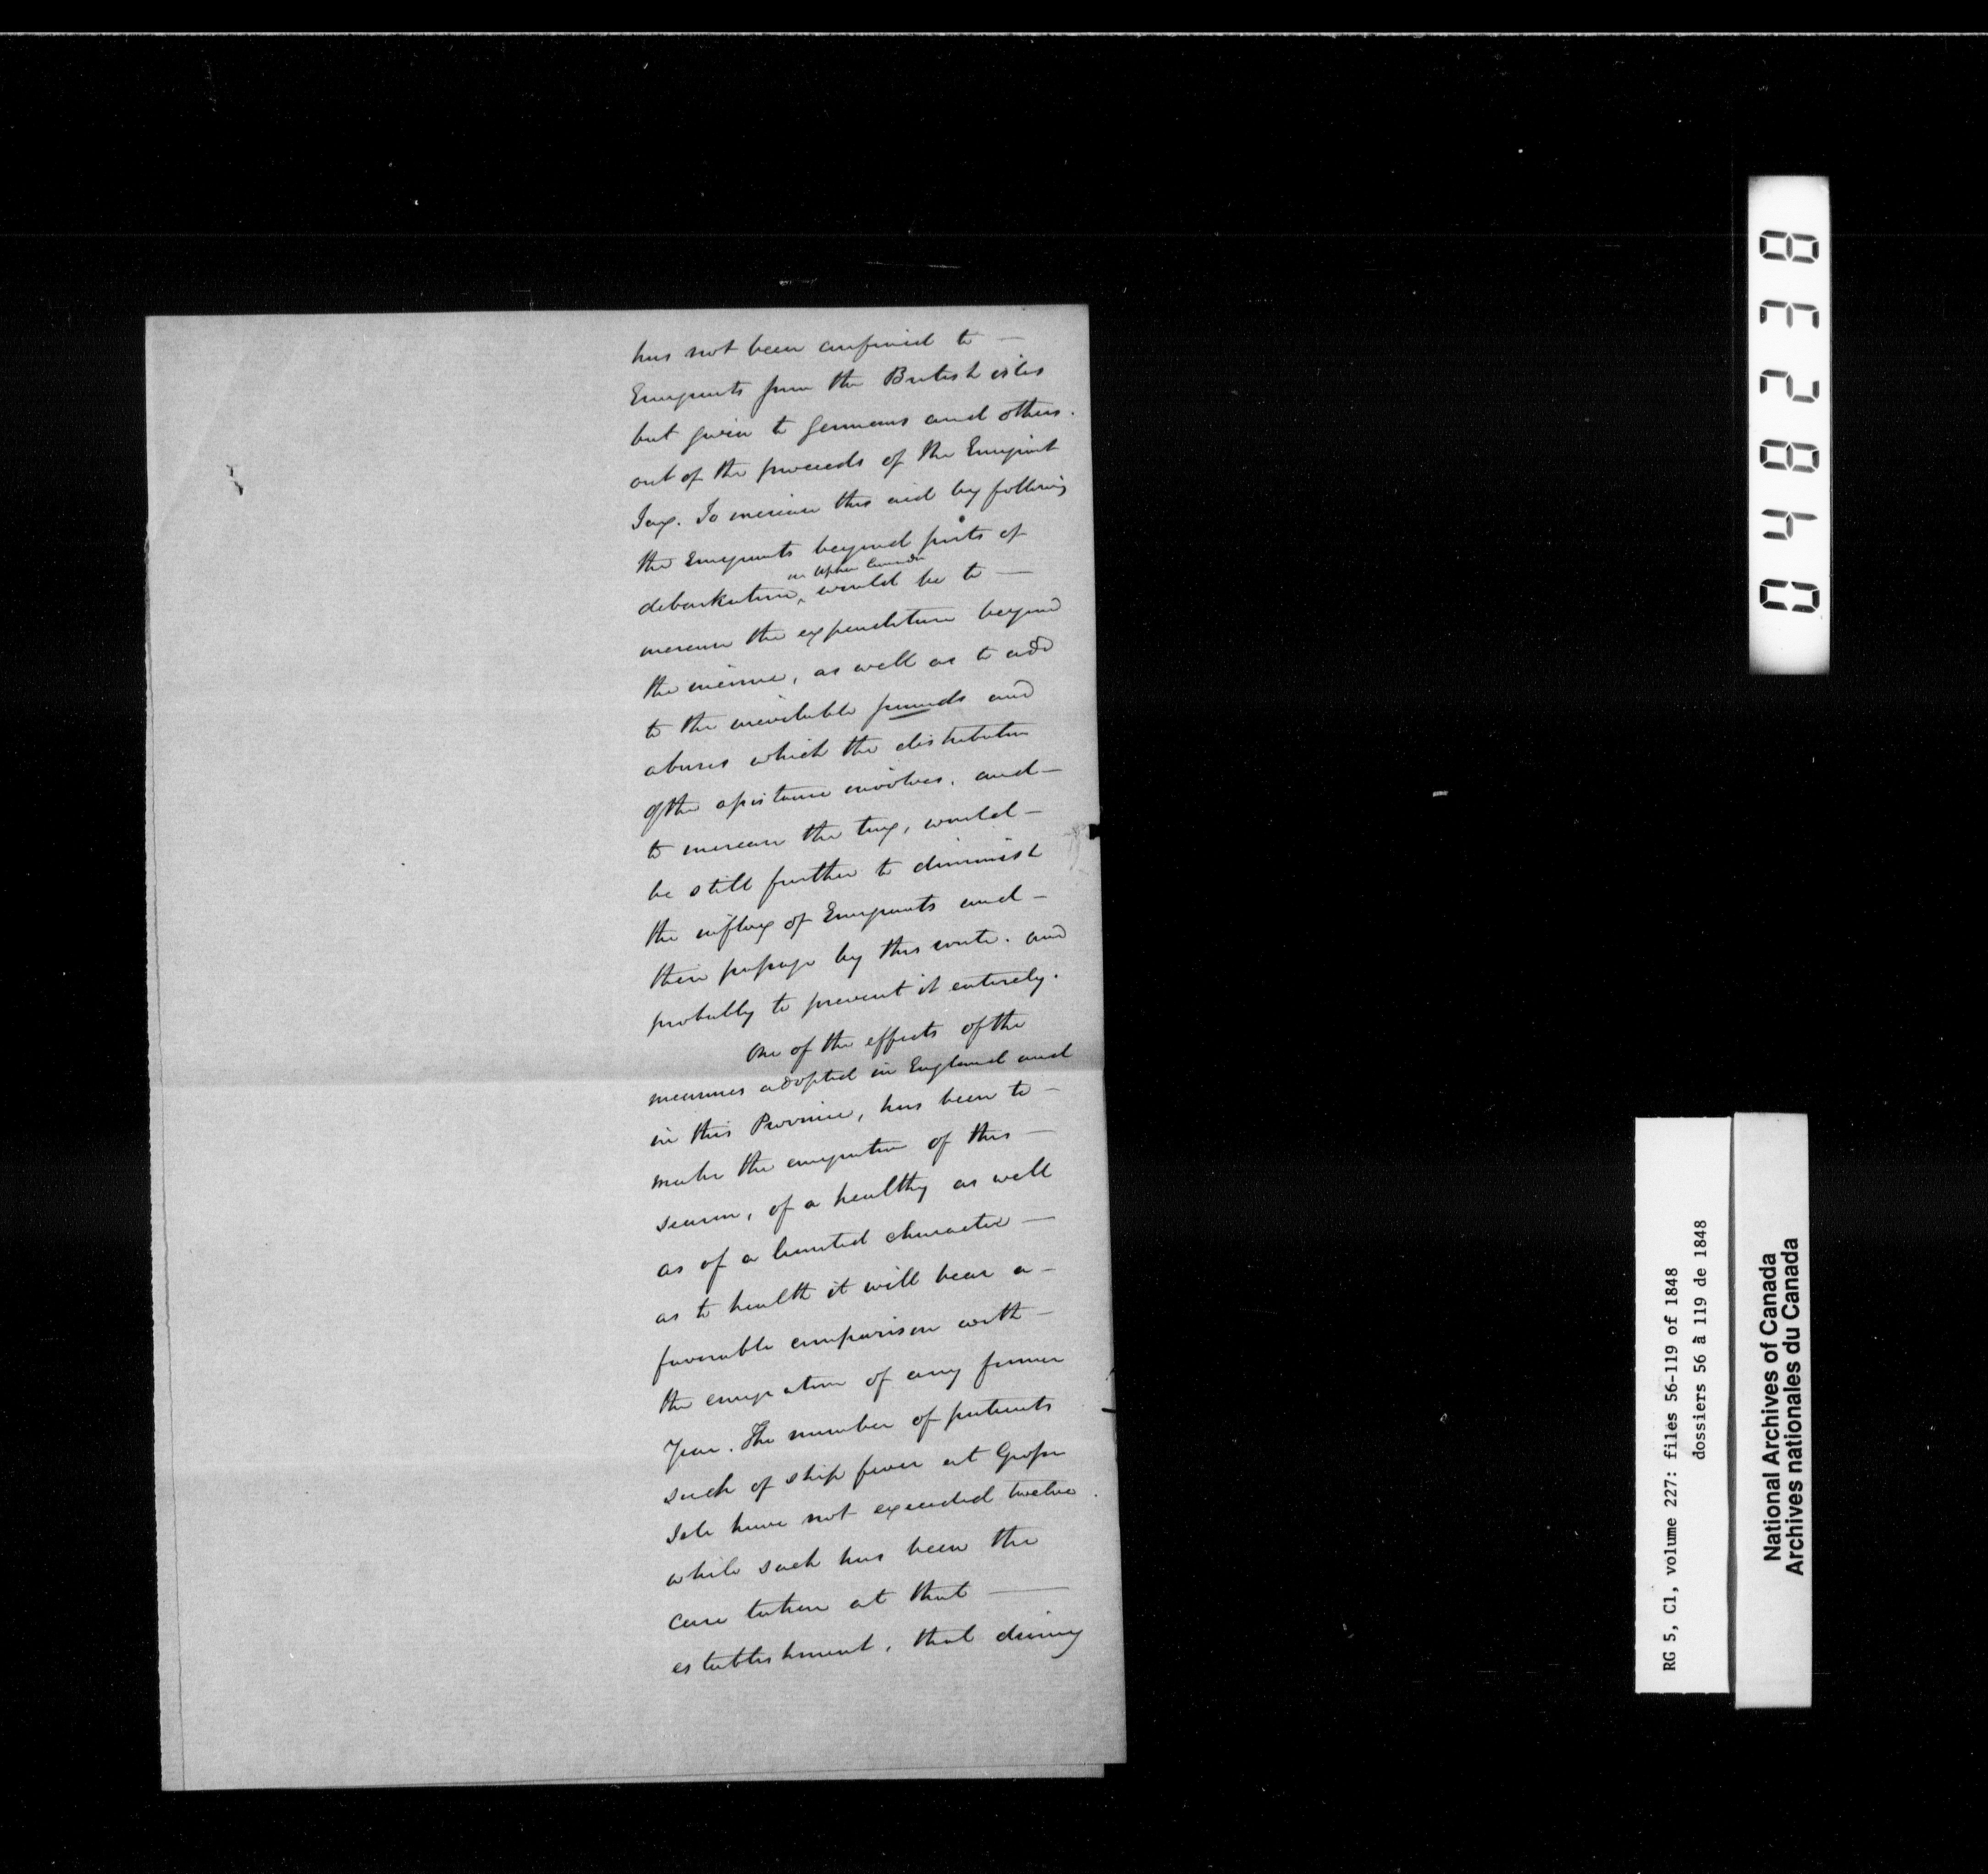 has not been confined to —
Emigrants from the British isles
but given to Germans and others.
out of the proceeds of the Emigrant
Tax. To increase this aid by following
the Emigrants beyond ports of
in Upper Canada
debarkation, ^ would be to —
increase the expenditure beyond
the income, as well as to add
to the inevitable frauds and
abuses which the distribution
of the assistance involves, and —
to increase the tax, would —
be still further to diminish
the influx of Emigrants and —
their passage by this route. and
probably to prevent it entirely.
One of the effects of the
measures adopted in England and
in this Province, has been to —
make the emigration of this —
season, of a healthy as well
as of a limited character —
as to health it will bear a —
favorable comparison with —
the emigration of any former
year. The number of patients
sick of ship fever at Grosse
Isle have not exceeded twelve.
while such has been the
care taken at that —
establishment, that during
048238
RG 5, C1, volume 227: files 56-119 of 1848
dossiers 56 à 119 de 1848
National Archives of Canada
Archives nationales du Canada